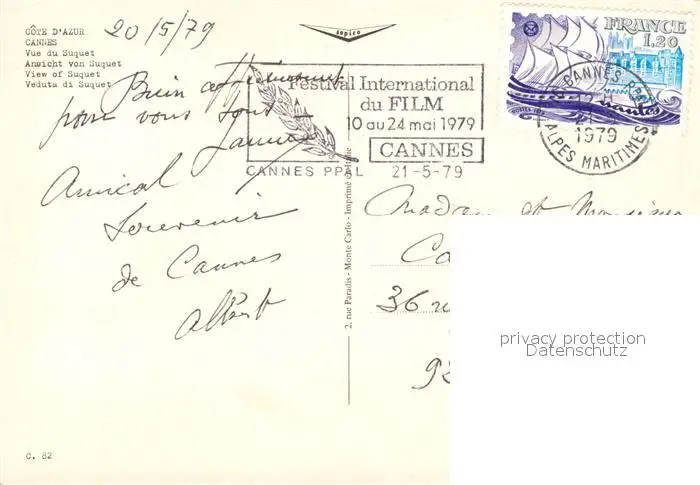 CÔTE D'AZUR
CANNES
Vue du Suquet
Ansicht von Suquet
View of Suquet
Veduta di Suquet
20/5/79
sopico
FRANCE
1,20
nantes
Festival International
du FILM
10 au 24 mai 1979
CANNES
CANNES PPAL 21-5-79
CANNES PPAL
21-5
1979
ALPES MARITIMES
pour vous tous
Amical
Souvenir
de Cannes
Albert
2, rue Paradis - Monte Carlo - Imprimé
Madame et Monsieur
Ca
36 ru
93
privacy protection
Datenschutz
C. 82